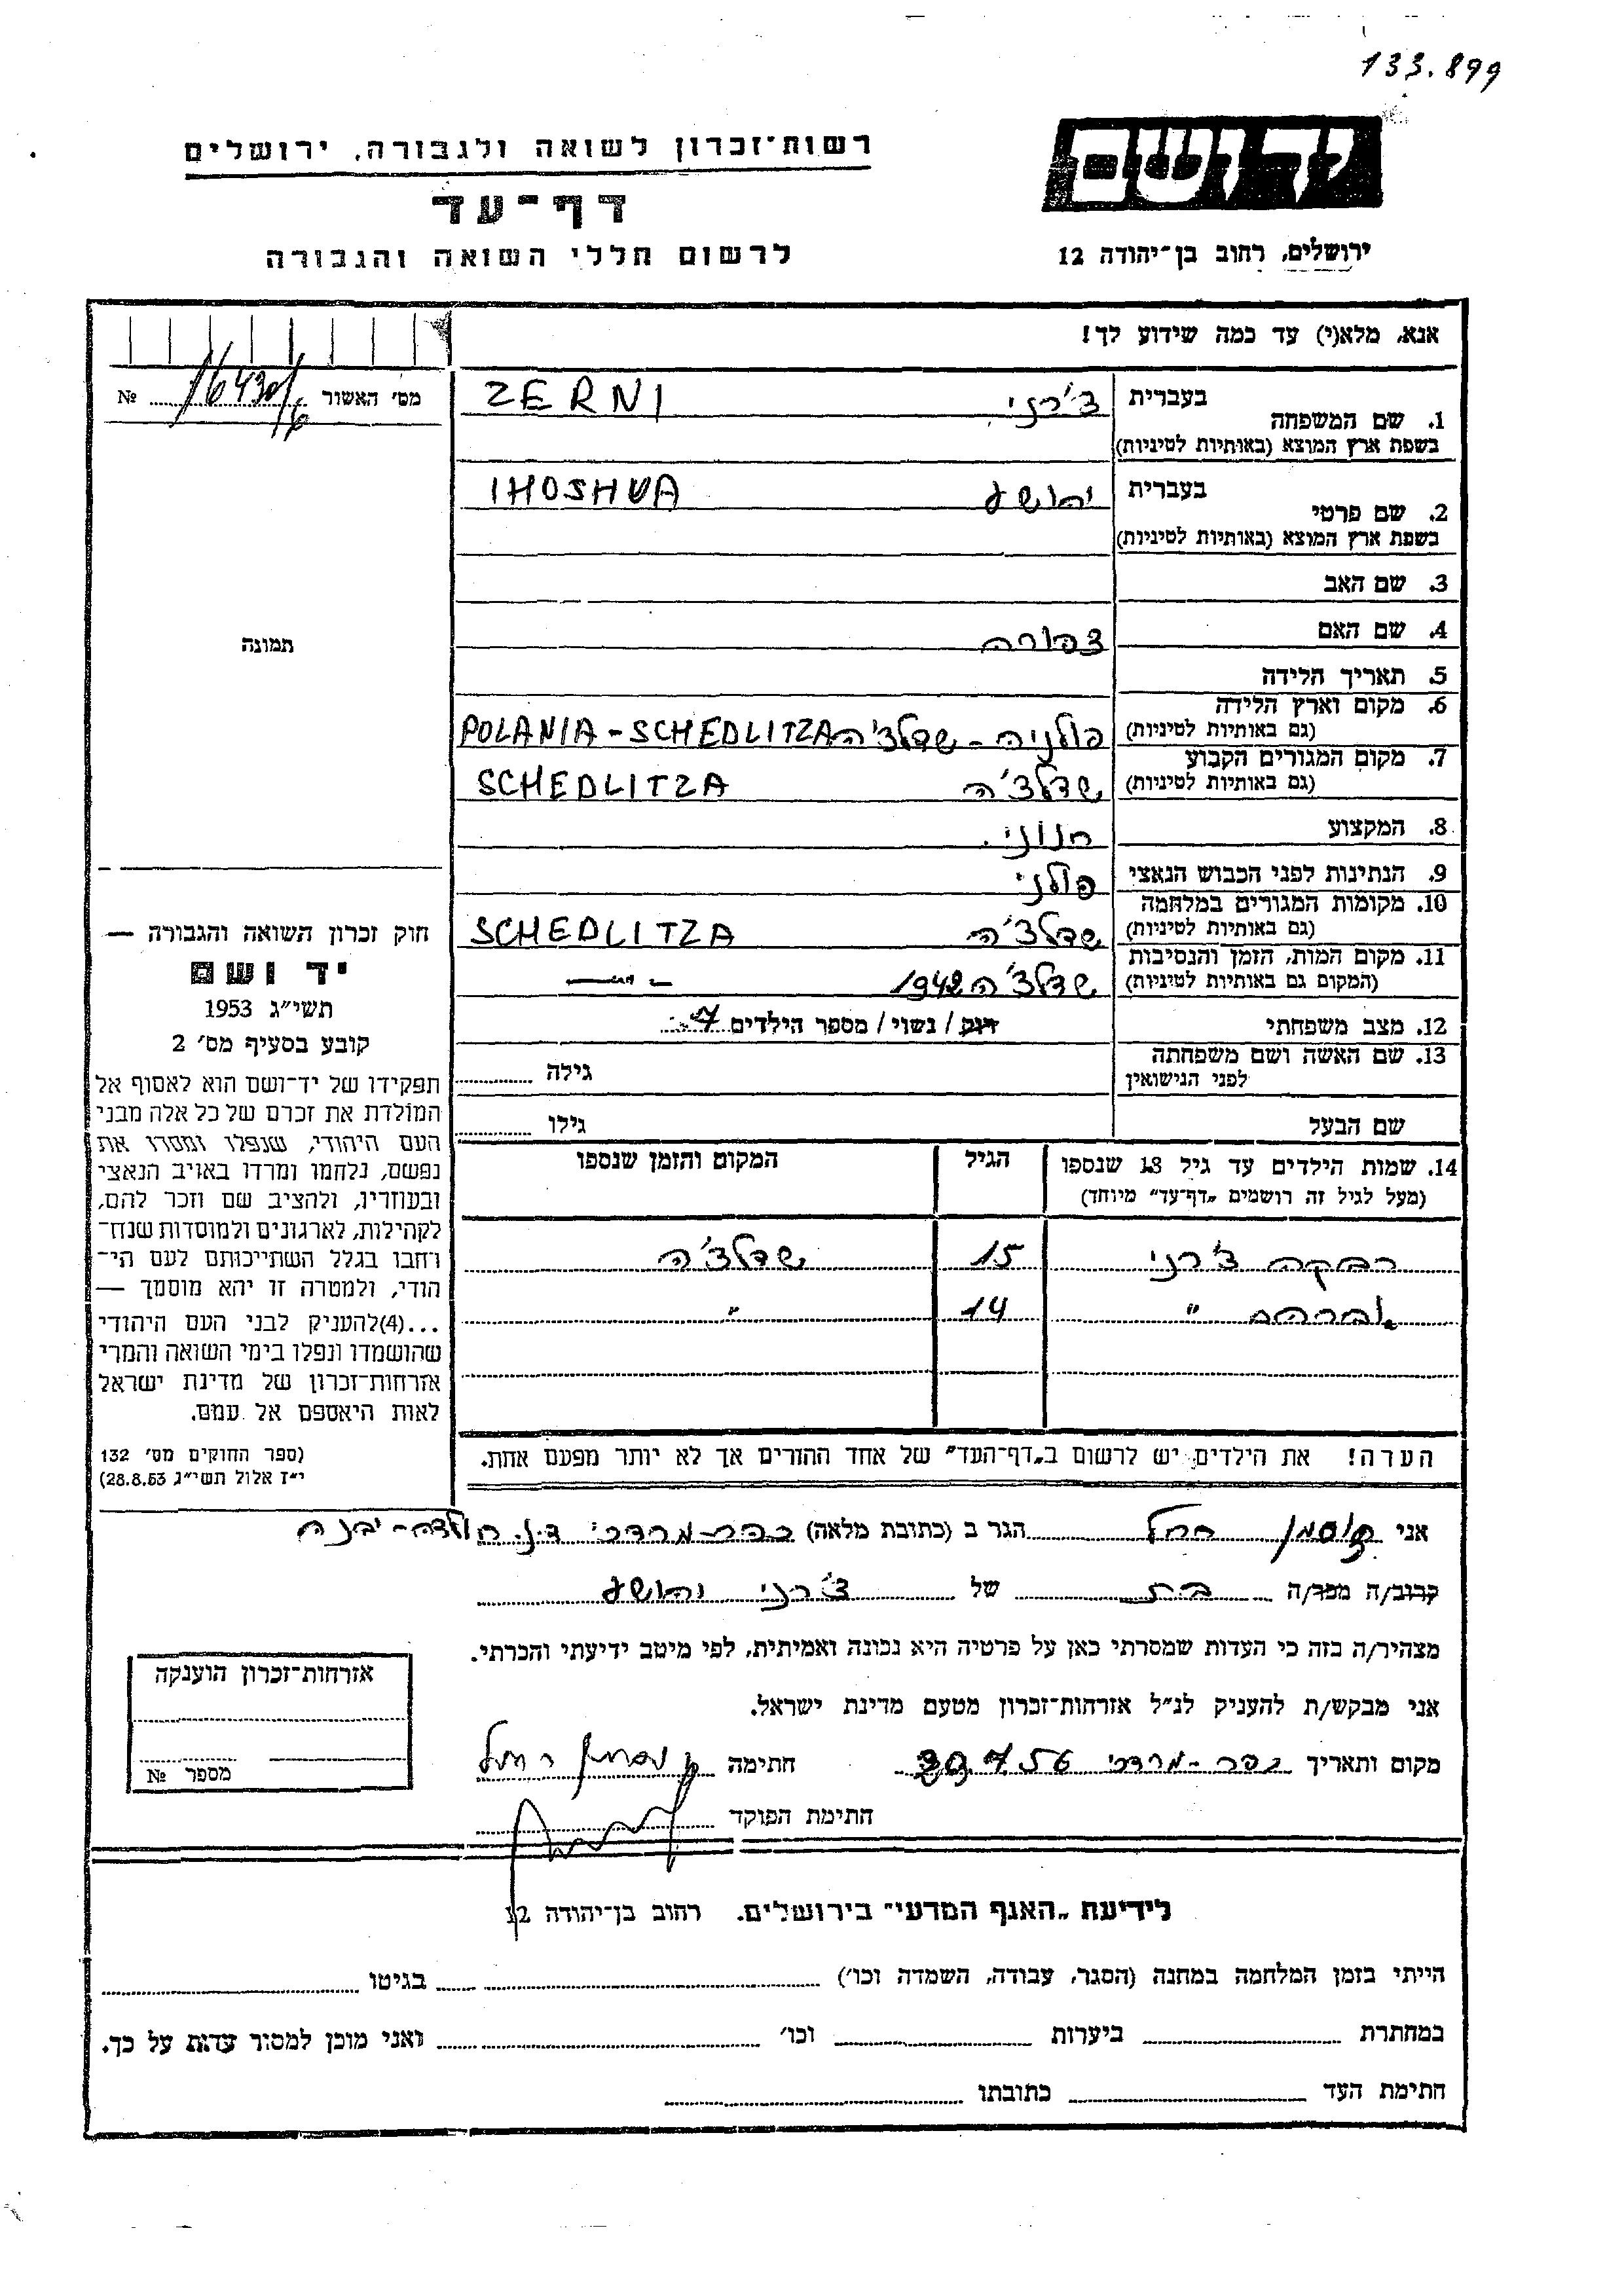 133.899
יד ושם
רשות־זכרון לשואה ולגבורה, ירושלים
דף־עד
ירושלים, רחוב בן־יהודה 12
לרשום חללי השואה והגבורה
אנא, מלא(י) עד כמה שידוע לך!
מס׳ האשור № 16430/6
1. שם המשפחה בעברית צ׳רני ZERNI
בשפת ארץ המוצא (באותיות לטיניות)
2. שם פרטי בעברית יהושע IHOSHUA
בשפת ארץ המוצא (באותיות לטיניות)
3. שם האב
4. שם האם צפורה
תמונה
5. תאריך הלידה
6. מקום וארץ הלידה
(גם באותיות לטיניות) פולניה - שדלצ׳ה POLANIA - SCHEDLITZA
7. מקום המגורים הקבוע
(גם באותיות לטיניות) שדלצ׳ה SCHEDLITZA
8. המקצוע חנוני.
9. הנתינות לפני הכבוש הנאצי פולני
10. מקומות המגורים במלחמה
(גם באותיות לטיניות) שדלצ׳ה SCHEDLITZA
11. מקום המות, הזמן והנסיבות
(המקום גם באותיות לטיניות) שדלצ׳ה 1942 - " -
12. מצב משפחתי רוק / נשוי / מספר הילדים 7
13. שם האשה ושם משפחתה
לפני הנישואין גילה
שם הבעל גילו
14. שמות הילדים עד גיל 18 שנספו הגיל המקום והזמן שנספו
(מעל לגיל זה רושמים „דף־עד״ מיוחד)
רבקה צ׳רני 15 שדלצ׳ה
אברהם " 14 "
הערה! את הילדים יש לרשום ב„דף־העד״ של אחד ההורים אך לא יותר מפעם אחת.
חוק זכרון השואה והגבורה —
יד ושם
תשי״ג 1953
קובע בסעיף מס׳ 2
תפקידו של יד־ושם הוא לאסוף אל
המולדת את זכרם של כל אלה מבני
העם היהודי, שנפלו ומסרו את
נפשם, נלחמו ומרדו באויב הנאצי
ובעוזריו, ולהציב שם וזכר להם,
לקהילות, לארגונים ולמוסדות שנח־
רחבו בגלל השתייכותם לעם הי־
הודי, ולמטרה זו יהא מוסמך —
...(4)להעניק לבני העם היהודי
שהושמדו ונפלו בימי השואה והמרי
אזרחות־זכרון של מדינת ישראל
לאות היאספם אל עמם.
(ספר החוקים מס׳ 132
י״ז אלול תשי״ג 28.8.53)
אני זוסמן רחל הגר ב (כתובת מלאה) כפר-מרדכי ד.נ. חולדה-יבנה
קרוב/ה מכר/ה בת של צ׳רני יהושע
מצהיר/ה בזה כי העדות שמסרתי כאן על פרטיה היא נכונה ואמיתית, לפי מיטב ידיעתי והכרתי.
אני מבקש/ת להעניק לנ״ל אזרחות־זכרון מטעם מדינת ישראל.
מקום ותאריך כפר-מרדכי 30.7.56 חתימה זוסמן רחל
חתימת הפוקד
אזרחות־זכרון הוענקה
מספר №
לידיעת „האגף המדעי״ בירושלים. רחוב בן־יהודה 12
הייתי בזמן המלחמה במחנה (הסגר, עבודה, השמדה וכו׳) בגיטו
במחתרת ביערות וכו׳ ואני מוכן למסור עדות על כך.
חתימת העד כתובתו